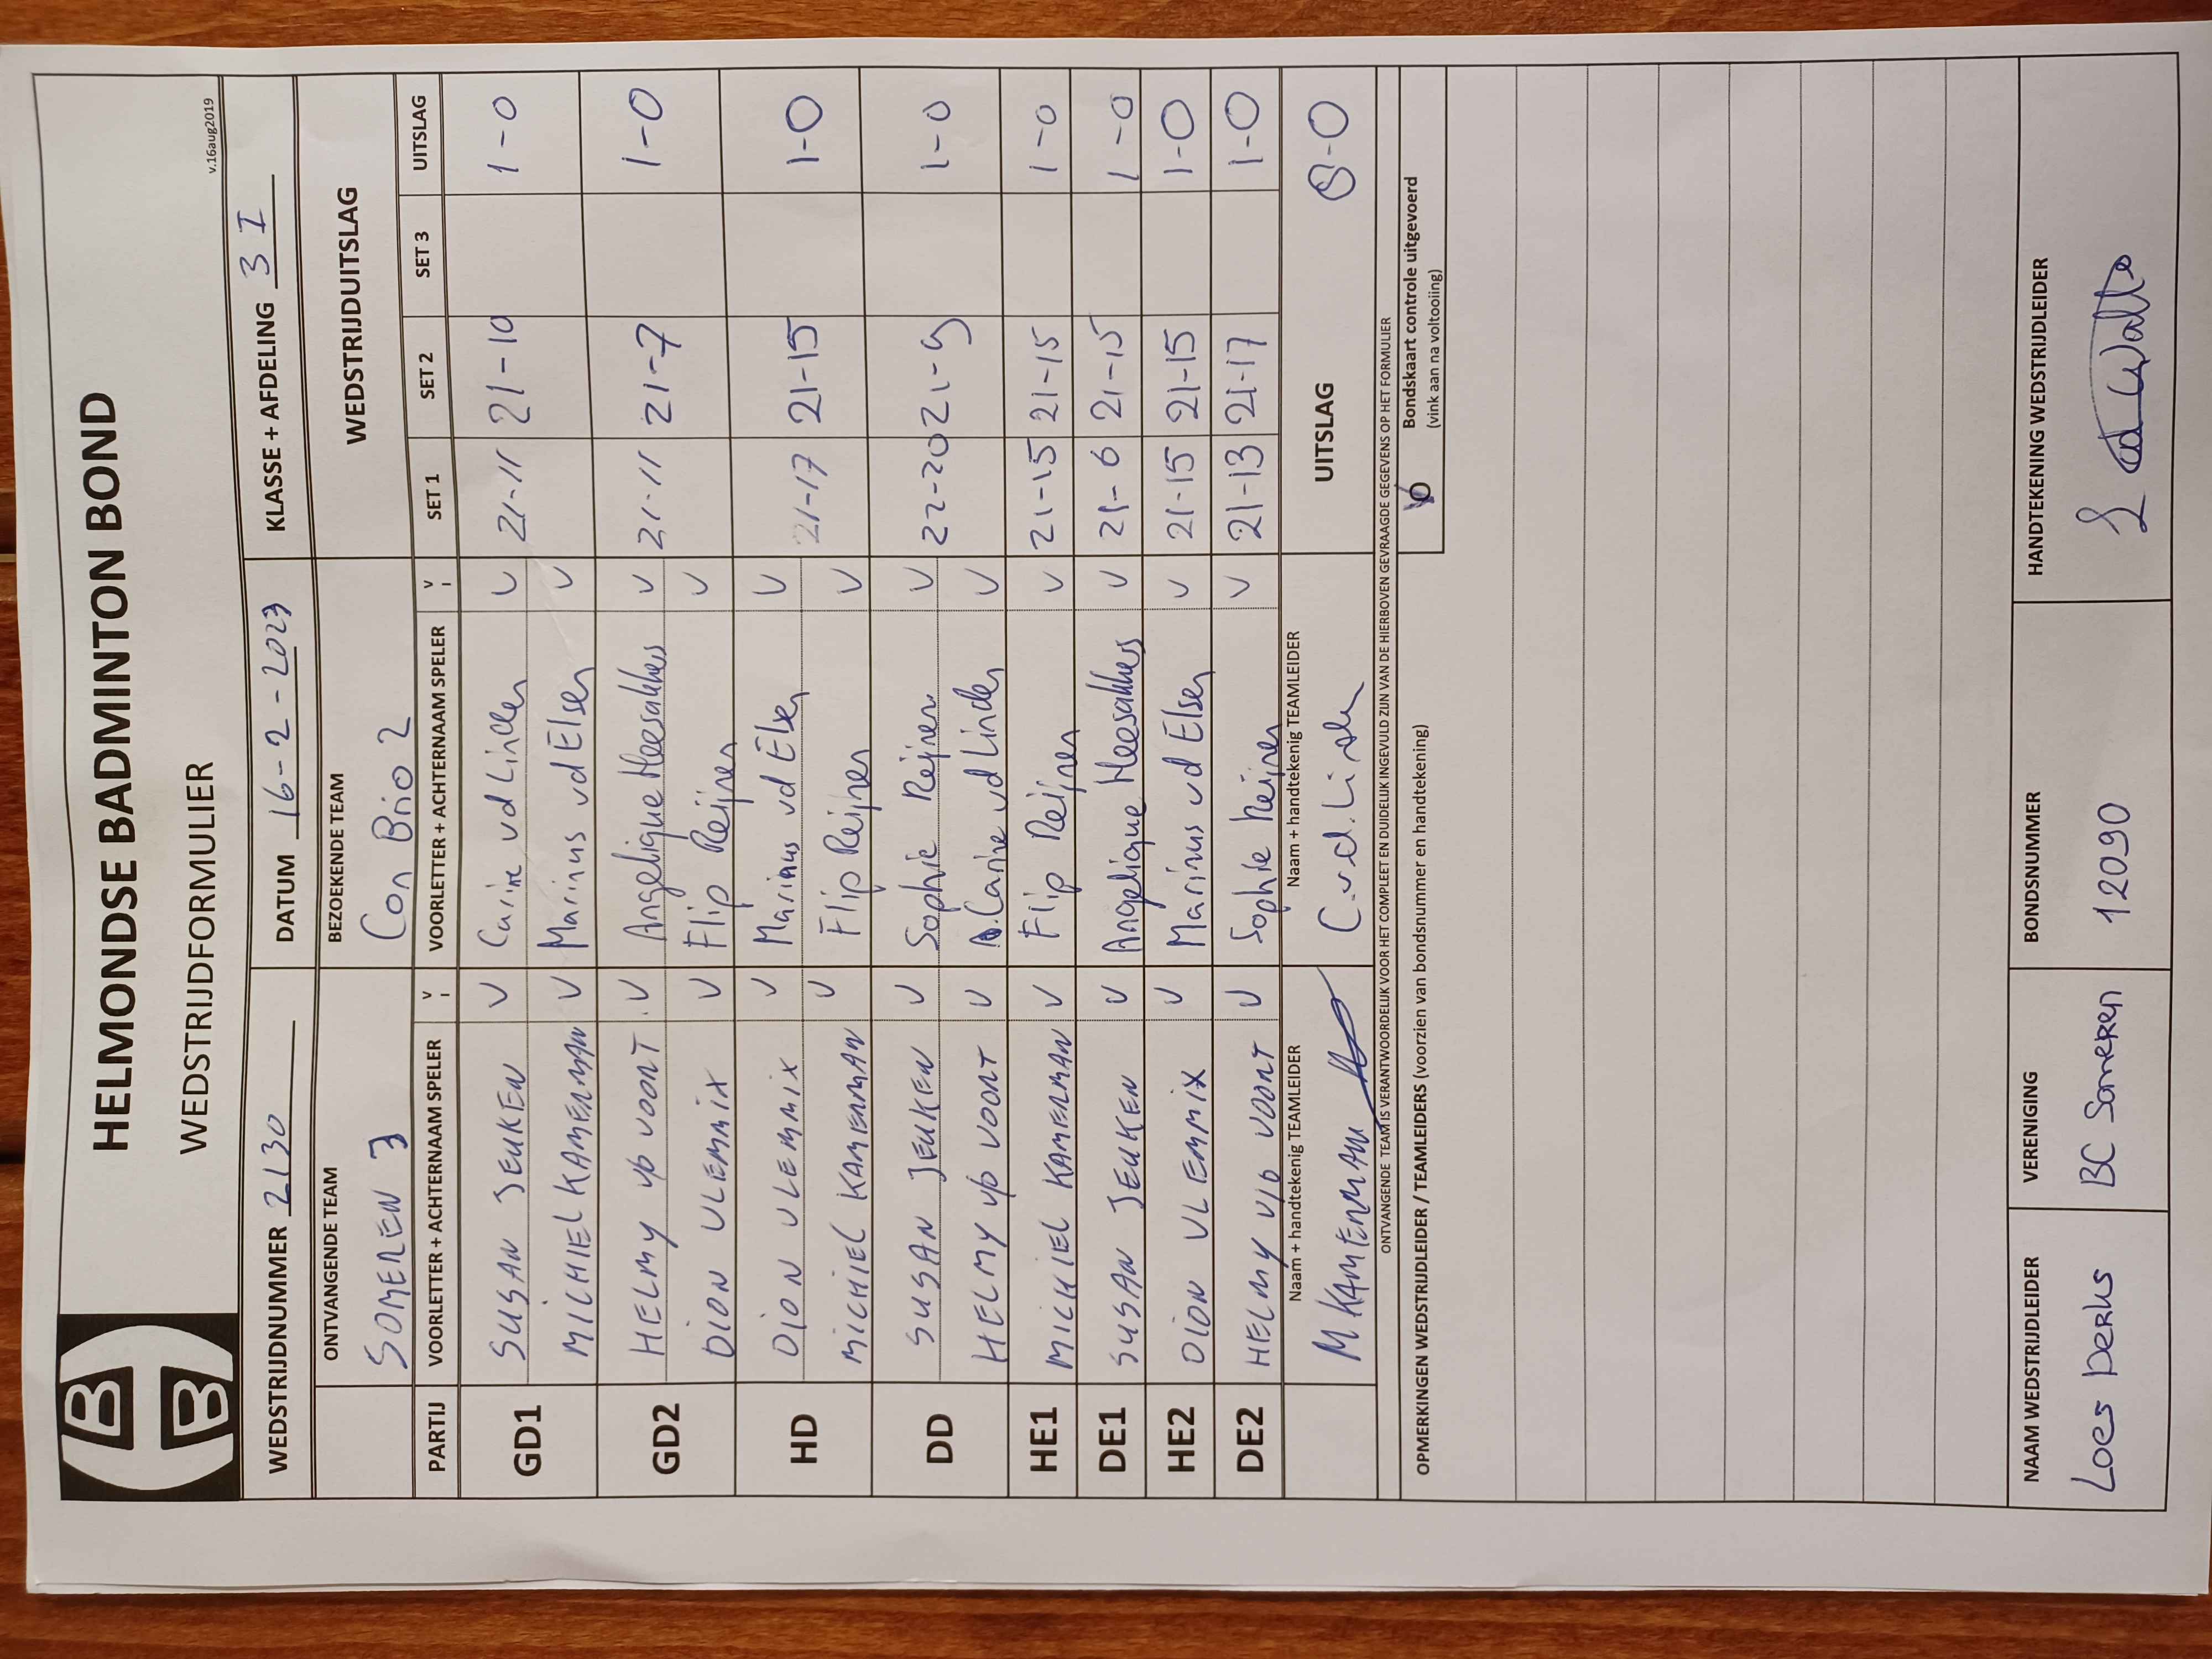 HELMONDSE BADMINTON BOND
WEDSTRIJDFORMULIER
v.16aug2019
WEDSTRIJDNUMMER 2130 DATUM 16-2-2023 KLASSE + AFDELING 3 I
ONTVANGENDE TEAM BEZOEKENDE TEAM WEDSTRIJDUITSLAG
SOMEREN 3 Con Brio 2
PARTIJ VOORLETTER + ACHTERNAAM SPELER V I VOORLETTER + ACHTERNAAM SPELER V I SET 1 SET 2 SET 3 UITSLAG
GD1 SUSAN JEUKEN V Carine vd Linden V 21-11 21-10 1-0
MICHIEL KAMERMAN V Marinus vd Elsen V
GD2 HELMY v/b VOORT V Angelique Heesakkers V 21-11 21-7 1-0
DION VLEMMIX V Flip Reijnen V
HD DION VLEMIX V Marinus vd Elsen V 21-17 21-15 1-0
MICHIEL KAMERMAN V Flip Reijnen V
DD SUSAN JEUKEN V Sophie Reijnen V 22-20 21-9 1-0
HELMY v/b VOORT V Carine vd Linden V
HE1 MICHIEL KAMERMAN V Flip Reijnen V 21-15 21-15 1-0
DE1 SUSAN JEUKEN V Angelique Heesakkers V 21-6 21-15 1-0
HE2 DION VLEMMIX V Marinus vd Elsen V 21-15 21-15 1-0
DE2 HELMY v/b VOORT V Sophie Reijnen V 21-13 21-17 1-0
Naam + handtekenig TEAMLEIDER Naam + handtekenig TEAMLEIDER UITSLAG 8-0
M KAMERMAN C.vd.Linden
ONTVANGENDE TEAM IS VERANTWOORDELIJK VOOR HET COMPLEET EN DUIDELIJK INGEVULD ZIJN VAN DE HIERBOVEN GEVRAAGDE GEGEVENS OP HET FORMULIER
OPMERKINGEN WEDSTRIJDLEIDER / TEAMLEIDERS (voorzien van bondsnummer en handtekening)
O Bondskaart controle uitgevoerd
(vink aan na voltooiing)
NAAM WEDSTRIJDLEIDER VERENIGING BONDSNUMMER HANDTEKENING WEDSTRIJDLEIDER
Loes Derks BC Someren 12090